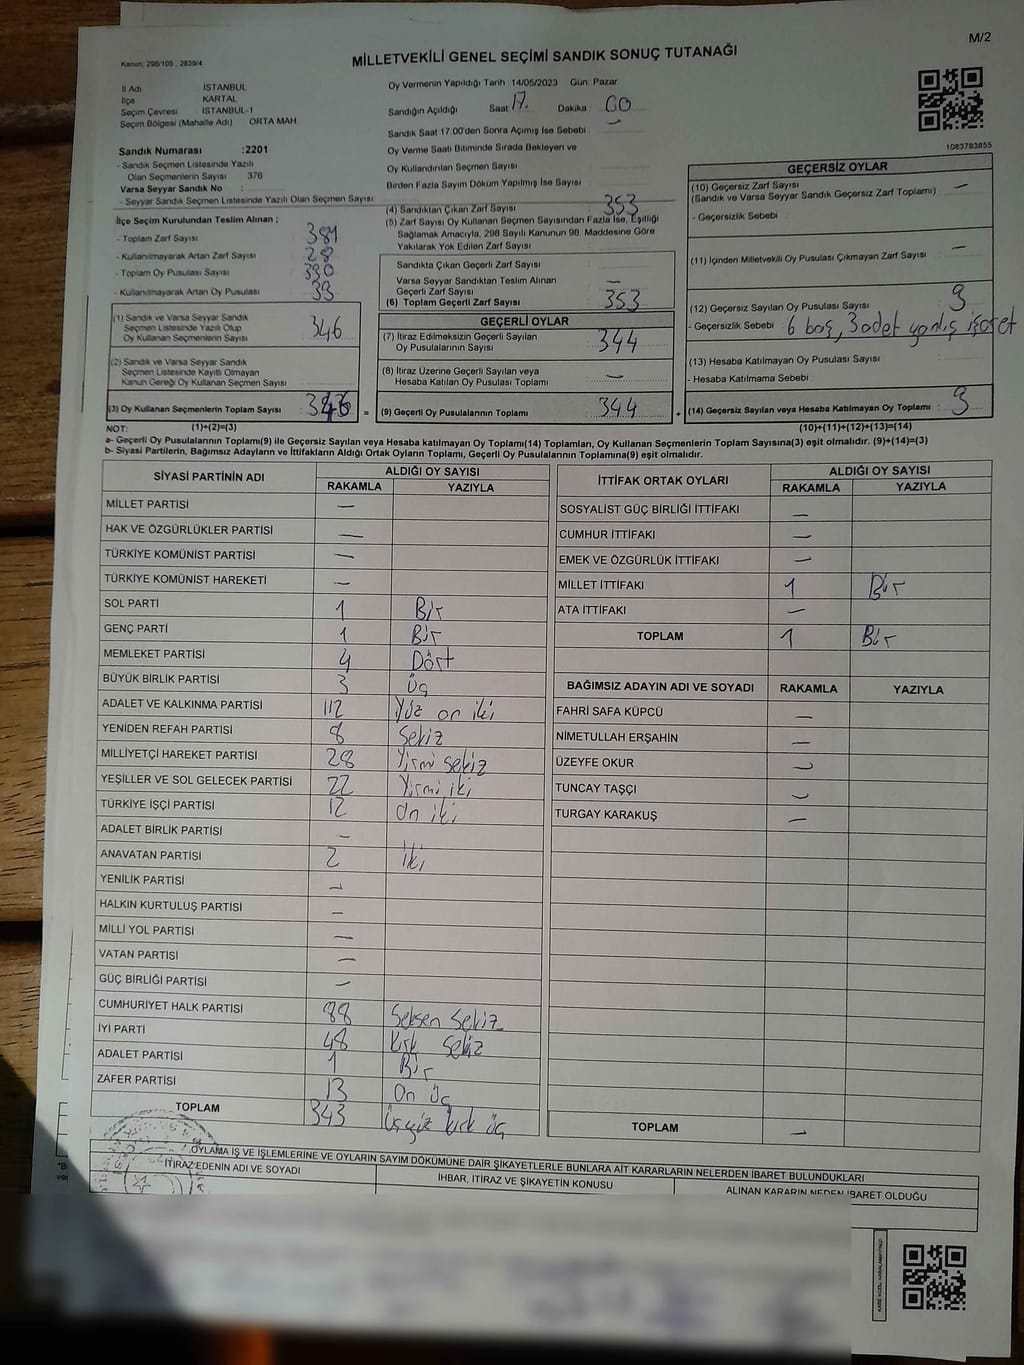 M/2
Kanun: 298/105 , 2839/4
MİLLETVEKİLİ GENEL SEÇİMİ SANDIK SONUÇ TUTANAĞI
İl Adı İSTANBUL
İlçe KARTAL
Seçim Çevresi İSTANBUL-1
Seçim Bölgesi (Mahalle Adı) ORTA MAH
Oy Vermenin Yapıldığı Tarih 14/05/2023 Gün: Pazar
Sandığın Açıldığı Saat 17. Dakika 00
Sandık Saat 17.00'den Sonra Açımış İse Sebebi
Oy Verme Saati Bitiminde Sırada Bekleyen ve
Oy Kullandırılan Seçmen Sayısı
Birden Fazla Sayım Döküm Yapılmış İse Sayısı
1083783855
Sandık Numarası :2201
- Sandık Seçmen Listesinde Yazılı
Olan Seçmenlerin Sayısı 376
Varsa Seyyar Sandık No :
- Seyyar Sandık Seçmen Listesinde Yazılı Olan Seçmen Sayısı
İlçe Seçim Kurulundan Teslim Alınan ;
- Toplam Zarf Sayısı
- Kullanılmayarak Artan Zarf Sayısı 28
- Toplam Oy Pusulası Sayısı
- Kullanılmayarak Artan Oy Pusulası 33
(1) Sandık ve Varsa Seyyar Sandık
Seçmen Listesinde Yazılı Olup
Oy Kullanan Seçmenlerin Sayısı 346
(2) Sandık ve Varsa Seyyar Sandık
Seçmen Listesinde Kayıtlı Olmayan
Kanun Gereği Oy Kullanan Seçmen Sayısı
(3) Oy Kullanan Seçmenlerin Toplam Sayısı =
(4) Sandıktan Çıkan Zarf Sayısı 353
(5) Zarf Sayısı Oy Kullanan Seçmen Sayısından Fazla İse, Eşitliği
Sağlamak Amacıyla, 298 Sayılı Kanunun 98. Maddesine Göre
Yakılarak Yok Edilen Zarf Sayısı
Sandıkta Çıkan Geçerli Zarf Sayısı
Varsa Seyyar Sandıktan Teslim Alınan
Geçerli Zarf Sayısı —
(6) Toplam Geçerli Zarf Sayısı 353
GEÇERLİ OYLAR
(7) İtiraz Edilmeksizin Geçerli Sayılan
Oy Pusulalarının Sayısı 344
(8) İtiraz Üzerine Geçerli Sayılan veya
Hesaba Katılan Oy Pusulası Toplamı —
(9) Geçerli Oy Pusulalarının Toplamı 344 +
GEÇERSİZ OYLAR
(10) Geçersiz Zarf Sayısı —
(Sandık ve Varsa Seyyar Sandık Geçersiz Zarf Toplamı)
- Geçersizlik Sebebi
(11) İçinden Milletvekili Oy Pusulası Çıkmayan Zarf Sayısı —
(12) Geçersiz Sayılan Oy Pusulası Sayısı 9
- Geçersizlik Sebebi 6 boş, 3 adet yanlış işaret
(13) Hesaba Katılmayan Oy Pusulası Sayısı
- Hesaba Katılmama Sebebi
(14) Geçersiz Sayılan veya Hesaba Katılmayan Oy Toplamı 9
NOT: (1)+(2)=(3) (10)+(11)+(12)+(13)=(14)
a- Geçerli Oy Pusulalarının Toplamı(9) ile Geçersiz Sayılan veya Hesaba katılmayan Oy Toplamı(14) Toplamları, Oy Kullanan Seçmenlerin Toplam Sayısına(3) eşit olmalıdır. (9)+(14)=(3)
b- Siyasi Partilerin, Bağımsız Adayların ve İttifakların Aldığı Ortak Oyların Toplamı, Geçerli Oy Pusulalarının Toplamına(9) eşit olmalıdır.
SİYASİ PARTİNİN ADI ALDIĞI OY SAYISI
RAKAMLA YAZIYLA
MİLLET PARTİSİ —
HAK VE ÖZGÜRLÜKLER PARTİSİ —
TÜRKİYE KOMÜNİST PARTİSİ —
TÜRKİYE KOMÜNİST HAREKETİ —
SOL PARTİ 1 Bir
GENÇ PARTİ 1 Bir
MEMLEKET PARTİSİ 4 Dört
BÜYÜK BİRLİK PARTİSİ 3 üç
ADALET VE KALKINMA PARTİSİ 112 Yüz on iki
YENİDEN REFAH PARTİSİ 8 Sekiz
MİLLİYETÇİ HAREKET PARTİSİ 28 Yirmi sekiz
YEŞİLLER VE SOL GELECEK PARTİSİ 22 Yirmi iki
TÜRKİYE İŞÇİ PARTİSİ 12 On iki
ADALET BİRLİK PARTİSİ —
ANAVATAN PARTİSİ 2 İki
YENİLİK PARTİSİ —
HALKIN KURTULUŞ PARTİSİ —
MİLLİ YOL PARTİSİ —
VATAN PARTİSİ —
GÜÇ BİRLİĞİ PARTİSİ —
CUMHURİYET HALK PARTİSİ 88 Seksen Sekiz
İYİ PARTİ 48 Kırk Sekiz
ADALET PARTİSİ 1 Bir
ZAFER PARTİSİ 13 On Üç
TOPLAM 343 Üçyüz kırk üç
İTTİFAK ORTAK OYLARI ALDIĞI OY SAYISI
RAKAMLA YAZIYLA
SOSYALİST GÜÇ BİRLİĞİ İTTİFAKI —
CUMHUR İTTİFAKI —
EMEK VE ÖZGÜRLÜK İTTİFAKI —
MİLLET İTTİFAKI 1 Bir
ATA İTTİFAKI —
TOPLAM 1 Bir
BAĞIMSIZ ADAYIN ADI VE SOYADI RAKAMLA YAZIYLA
FAHRİ SAFA KÜPCÜ —
NİMETULLAH ERŞAHİN —
ÜZEYFE OKUR —
TUNCAY TAŞÇI —
TURGAY KARAKUŞ —
TOPLAM —
OYLAMA İŞ VE İŞLEMLERİNE VE OYLARIN SAYIM DÖKÜMÜNE DAİR ŞİKAYETLERLE BUNLARA AİT KARARLARIN NELERDEN İBARET BULUNDUKLARI
İTİRAZ EDENİN ADI VE SOYADI İHBAR, İTİRAZ VE ŞİKAYETİN KONUSU ALINAN KARARIN NEDEN İBARET OLDUĞU
KARE KODU KARALAMAYINIZ!